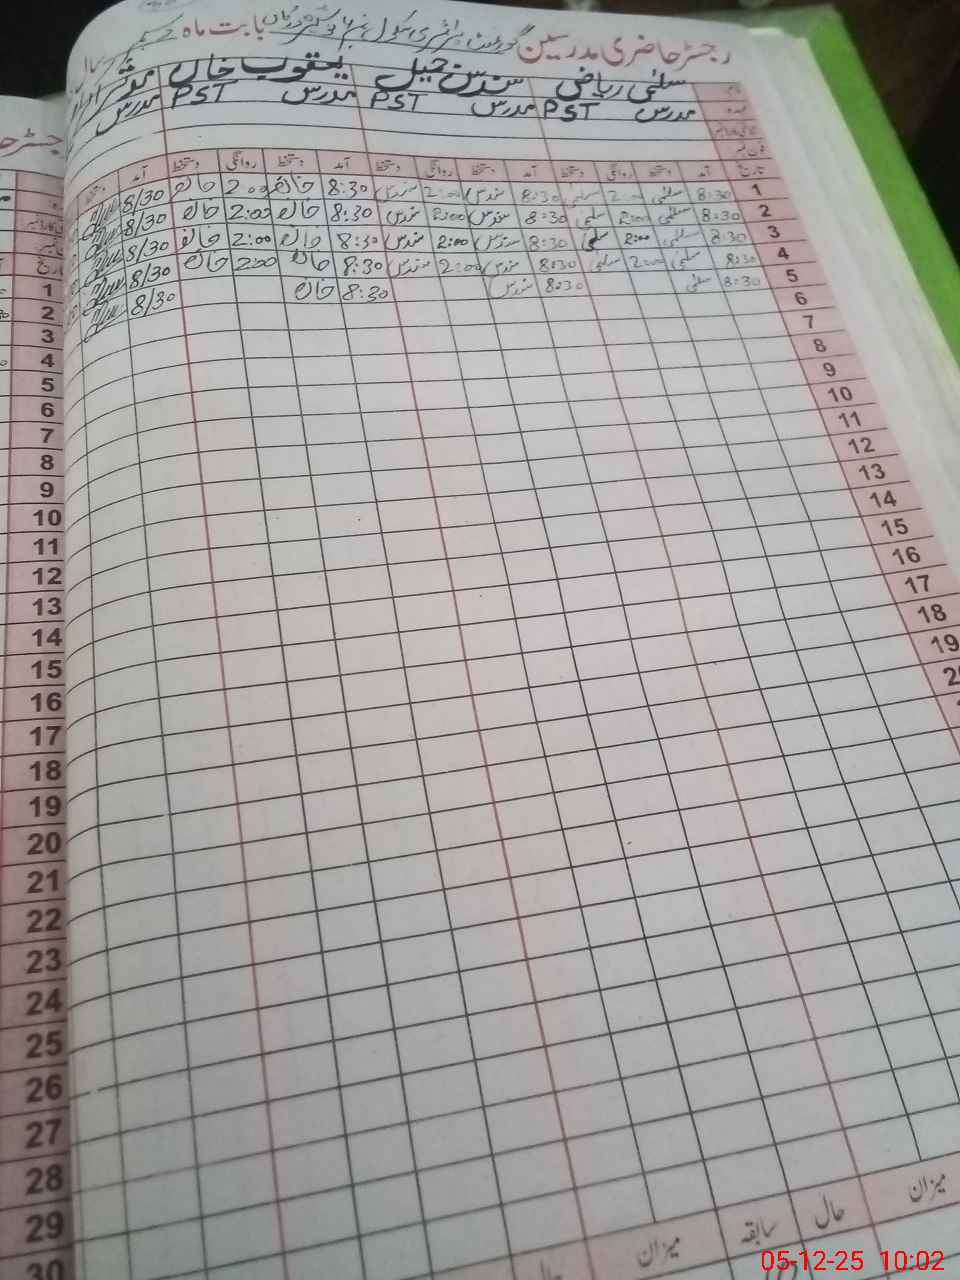 رجسٹر حاضری مدرسین گورنمنٹ پرائمری سکول نمبر بابت ماہ
سلمٰی ریاض سندس جمیل یعقوب خان
مدرس PST مدرس PST مدرس PST مدرس
تاریخ آمد دستخط روانگی دستخط آمد دستخط روانگی دستخط آمد دستخط روانگی دستخط آمد دستخط
1 8:30 سلمٰی 2:00 سلمٰی 8:30 سندس 2:00 سندس 8:30 خان 2:00 خان 8/30
2 8:30 سلمٰی 2:00 سلمٰی 8:30 سندس 2:00 سندس 8:30 خان 2:00 خان 8/30
3 8:30 سلمٰی 2:00 سلمٰی 8:30 سندس 2:00 سندس 8:30 خان 2:00 خان 8/30
4 8:30 سلمٰی 2:00 سلمٰی 8:30 سندس 2:00 سندس 8:30 خان 2:00 خان 8/30
5 8:30 سلمٰی 8:30 سندس 8:30 خان 8/30
6
7
8
9
10
11
12
13
14
15
16
17
18
19
میزان حال سابقہ میزان حال
تاریخ
1
2
3
4
5
6
7
8
9
10
11
12
13
14
15
16
17
18
19
20
21
22
23
24
25
26
27
28
29
30
05-12-25 10:02